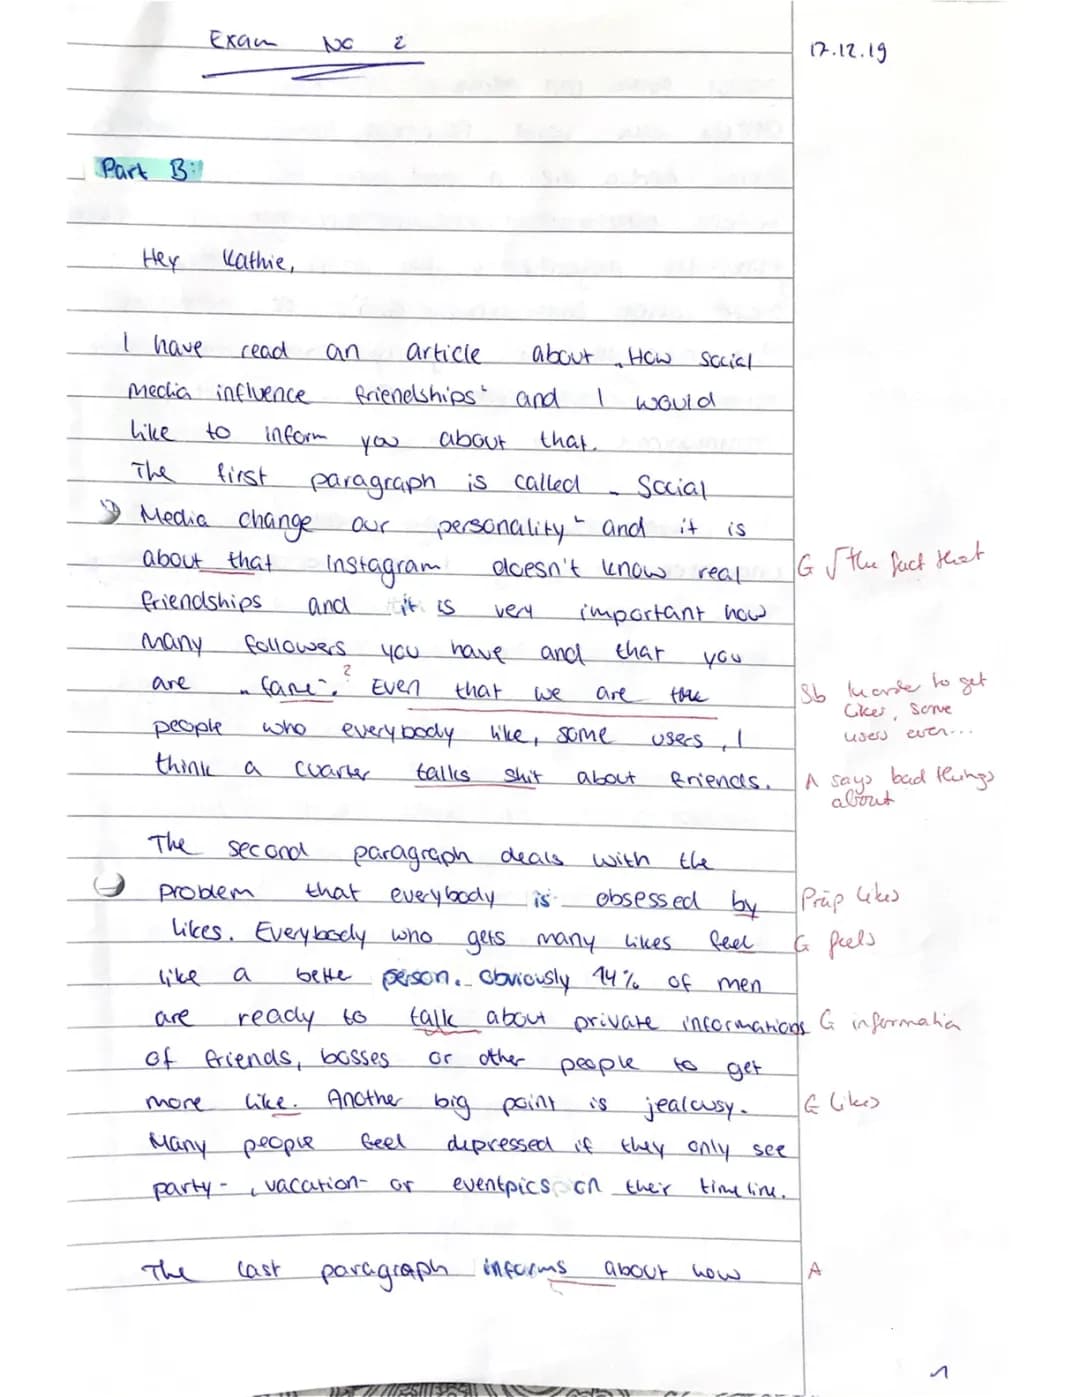 Exam No 2
17.12.19
Part B:
Hey Kathie,
I have read an article about „How social
Media influence friendships“ and I would
like to inform you about that.
The first paragraph is called „Social
Media change our personality“ and it is
about that Instagram doesn't know real
G √ the fact that
friendships and it is very important how
many followers you have and that you
are „fame“. Even that we are the
?
Sb In order to get
likes, some
users even...
people who everybody like, some users, I
think a quarter talks shit about friends.
A says bad things
about
The second paragraph deals with the
problem that everybody is obsessed by
Präp likes
likes. Everybody who gets many likes feel
G feels
like a bette person. Obviously 14% of men
are ready to talk about private informations
G information
of friends, bosses or other people to get
more like. Another big point is jealousy.
G likes
Many people feel depressed if they only see
party-, vacation- or eventpics on their timeline.
The last paragraph informs about how
A
1